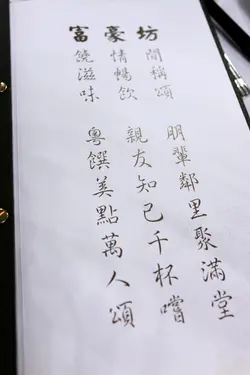 富豪坊
間稱頌
情暢飲
饒滋味
明輩鄰里聚滿堂
親友知己千杯嚐
粵饌美點萬人頌